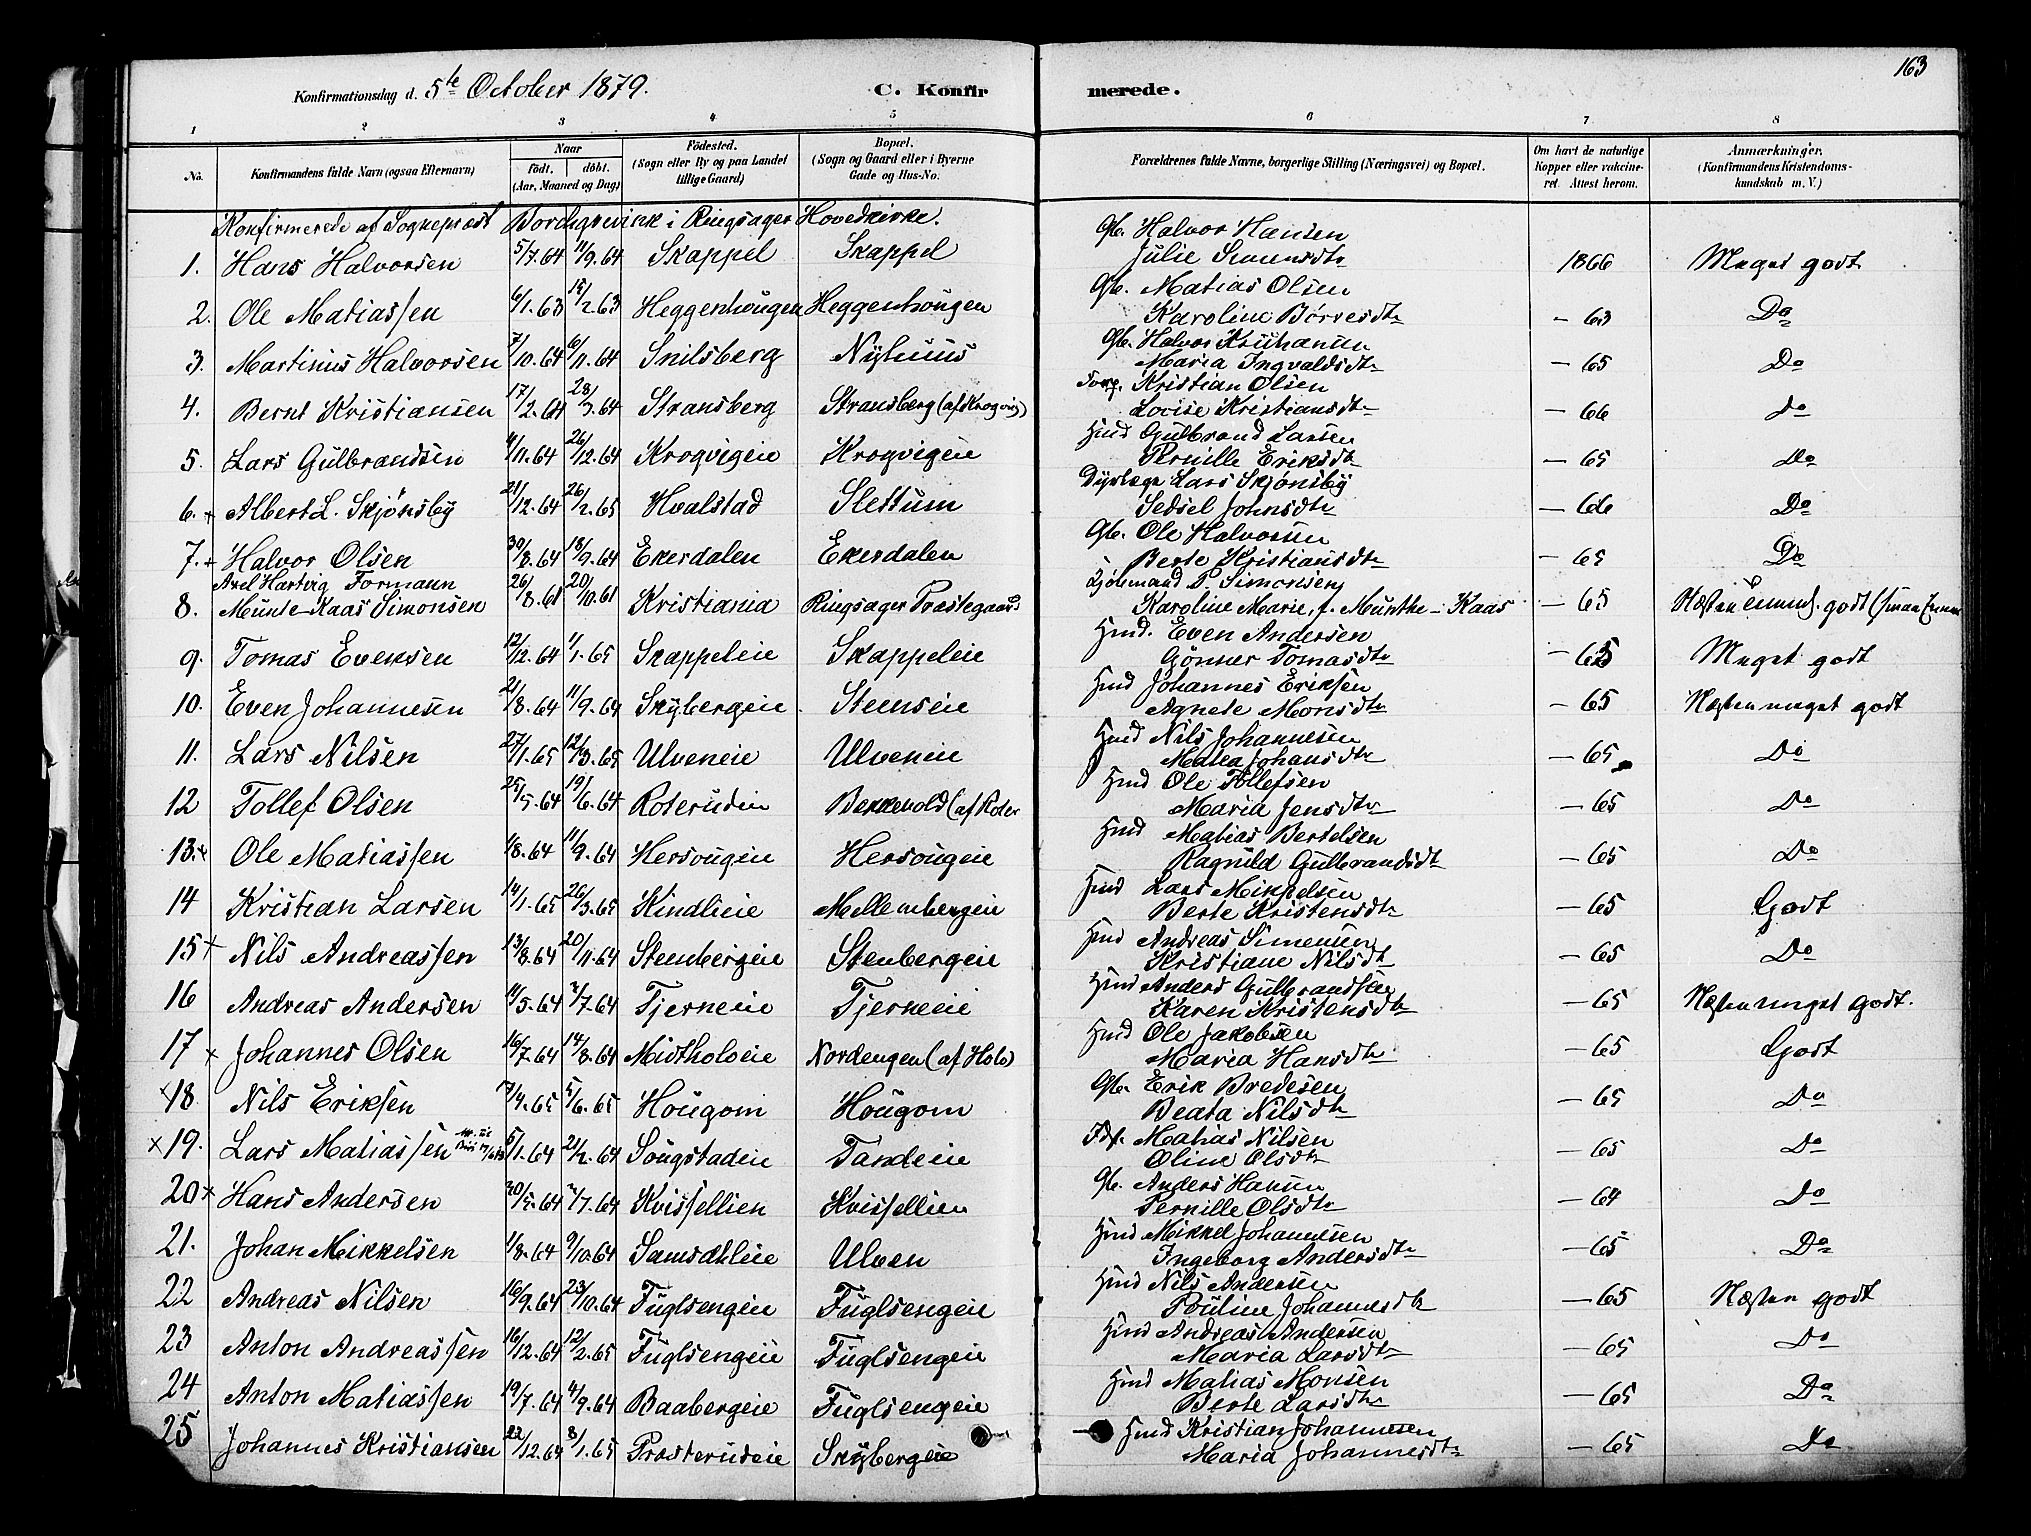 163
Konfirmationsdag d. 5te October 1879. C. Konfirmerede.
1 2 3 4 5 6 7 8
No. Konfirmandens fulde Navn (ogsaa Efternavn) Naar Födt. döbt. (Aar, Maaned og Dag) Födested. (Sogn eller By og paa Landet tillige Gaard) Bopæl. (Sogn og Gaard eller i Byerne Gade og Hus-No. Forældrenes fulde Navne, borgerlige Stilling (Næringsvei) og Bopæl. Om havt de naturlige Kopper eller vakcineret. Attest herom. Anmærkninger. (Konfirmandens Kristendomskundskab m. V.)
Konfirmerede af Sognepræst Borchgrevink i Ringsager Hovedkirke.
1. Hans Halvorsen 5/7.64 11/9.64 Skappel Skappel Gb. Halvor Hansen Julie Simensdtr 1866 Meget godt
2. Ole Matiassen 6/1.63 15/2.63 Heggenhougen Heggenhougen Gb. Matias Olsen Karoline Børresdtr - 63 Do
3. Martinius Halvorsen 7/10.64 6/11.64 Snilsberg Nyhuus Gb. Halvor Kristiansen Maria Ingvaldsdtr - 65 Do
4. Bernt Kristiansen 17/2.64 28/3.64 Stransberg Stransberg (af Krogvig) Kristian Olsen Lovise Kristiansdtr - 66 do
5. Lars Gulbrandsen 4/11.64 26/12.64 Krogvigeie Krogvigeie Hmd Gulbrand Larsen Pernille Eriksdtr - 65 Do
6. + Albert L. Skjønsby 21/12.64 26/2.65 Hvalstad Slettum Dyrlæge Lars Skjønsby Sedsel Johnsdtr - 66 Do
7. + Halvor Olsen 30/8.64 18/9.64 Ekerdalen Ekerdalen Gb. Ole Halvorsen Berte Kristiansdtr - 65 Do
8. Axel Hartvig Formann Munte-Kaas Simonsen 26/8.61 20/10.61 Kristiania Ringsager Præstegaard Kjøbmand P. Simonsen Karoline Marie, f. Munthe-Kaas - 65 Næsten godt
9. Tomas Evensen 12/12.64 1/1.65 Skappeleie Skappeleie Hmd. Even Andersen Gønner Tomasdtr - 65 Meget godt
10. Even Johannesen 21/8.64 11/9.64 Skybergeie Steinseie Hmd Johannes Eriksen Agnete Monsdtr - 65 Næsten meget godt
11. Lars Nilsen 27/1.65 12/3.65 Ulveneie Ulveneie Hmd Nils Johannesen Matea Johansdtr - 65 Do
12 Tollef Olsen 25/5.64 19/6.64 Roterudeie Bekkevold (af Roter Hmd Ole Tollefsen Maria Jensdtr - 65 Do
13. + Ole Matiassen /8.64 11/9.64 Hersougeie Hersougeie Hmd Matias Bertelsen Ragnild Gulbrandsdtr - 65 Do
14 Kristian Larsen 14/1.65 26/3.65 Kindlieie Mellembergeie Hmd Lars Mikkelsen Berte Kristensdtr - 65 Godt
15 + Nils Andreassen 13/8.64 20/11.64 Steenbergeie Stenbergeie Hmd Andreas Simensen Kristiane Nilsdt - 65 Do
16 Andreas Andersen 11/5.64 2/7.64 Tjerneie Tjerneie Hmd Anders Gulbrandsen Karen Kristensdtr - 65 Næsten meget godt.
17 x Johannes Olsen 16/7.64 14/8.64 Midtholoeie Nordengen (af Holo) Hmd Ole Jakobsen Maria Hansdtr - 65 Godt
x 18. Nils Eriksen 7/4.65 5/6.65 Hougom Hougom Gb. Erik Bredesen Beata Nilsdtr - 65 Do
x 19. Lars Matiassen 5/1.64 21/2.64 Sougstadeie Tandeie Matias Nilsen Oline Olsdtr - 65 Do
20 x Hans Andersen 20/5.64 2/7.64 Kvissellien Kvissellien Gb. Anders Hansen Pernille Olsdtr - 64 Do
21. Johan Mikkelsen 1/8.64 9/10.64 Samsæhleie Ulven Hmd Mikkel Johannesen Ingeborg Andersdtr - 65 Do
22 Andreas Nilsen 16/9.64 23/10.64 Fuglsengeie Fuglsengeie Hmd Nils Andersen Pouline Johannesdtr - 65 Næsten godt
23 Anton Andreassen 16/12.64 12/2.65 Fuglsengeie Fuglsengeie Hmd Andreas Andersen Maria Larsdtr - 65 Do
24 Anton Matiassen 19/7.64 4/9.64 Baabergeie Fuglsengeie Hmd Matias Monsen Berte Larsdtr - 65 Do
25 Johannes Kristiansen 22/12.64 8/1.65 Prosterudeie Skybergeie Hmd Kristian Johannesen Maria Johannesdtr - 65 Do